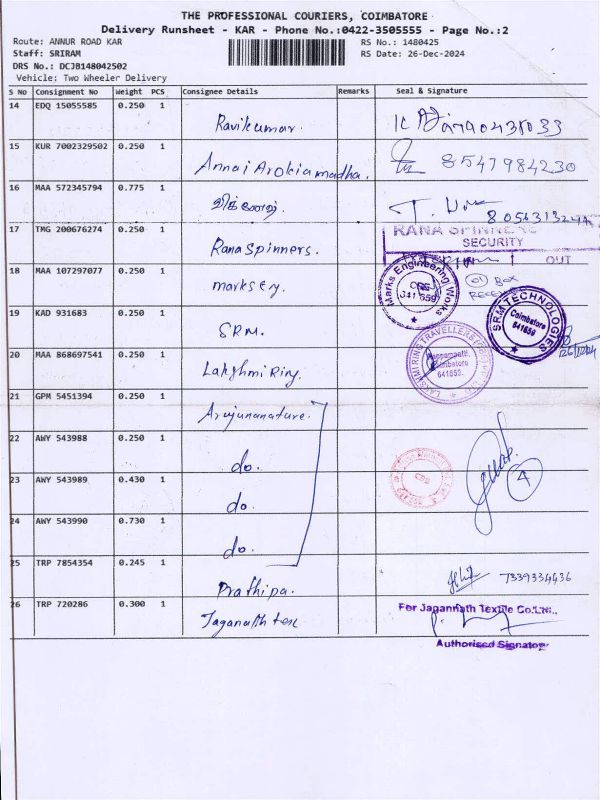 THE PROFESSIONAL COURIERS, COIMBATORE
Delivery Runsheet - KAR - Phone No.:0422-3505555 - Page No.:2
Route: ANNUR ROAD KAR
RS No.: 1480425
Staff: SRIRAM
RS Date: 26-Dec-2024
DRS No.: DCJB148042502
Vehicle: Two Wheeler Delivery
S No Consignment No Weight PCS Consignee Details Remarks Seal & Signature
14 EDQ 15055585 0.250 1
Ravikumar.
15 KUR 7002329502 0.250 1
Annai Arokiamadha. 8547984230
16 MAA 572345794 0.775 1
விக்னேஷ்.
17 TMG 200676274 0.250 1
RANA SPINNERS
SECURITY
Rana Spinners.
OUT
18 MAA 107297077 0.250 1
Marks Engineering Works
641 659
marks Ey.
01 Box
19 KAD 931683 0.250 1
SRM TECHNOLOGIES
Coimbatore
641659
S.R.M.
20 MAA 868697541 0.250 1
Coimbatore
641659.
Lakshmi Ring.
21 GPM 5451394 0.250 1
Arujunanature.
22 AWY 543988 0.250 1
do.
23 AWY 543989 0.430 1
4
do.
24 AWY 543990 0.730 1
do.
25 TRP 7854354 0.245 1
7339334436
Prathipa.
26 TRP 720286 0.300 1
For Jagannath Textile Co.Ltd.,
Jaganath tex
Authorised Signatory